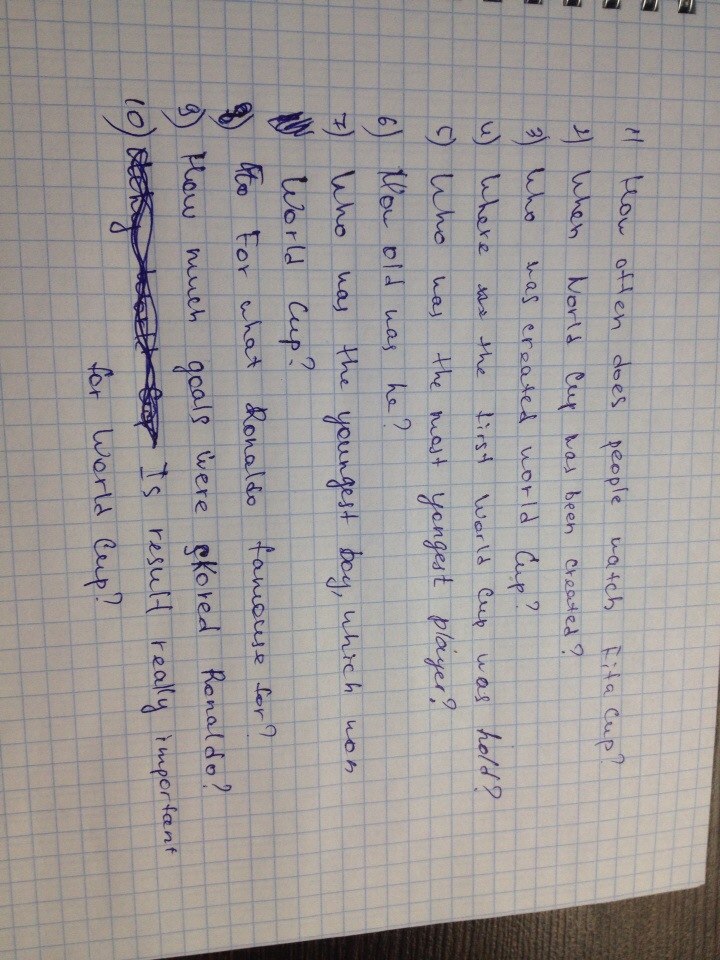 1) How often does people watch Fifa Cup?
2) When World Cup was been created?
3) Who was created world Cup?
4) Where the first World Cup was hold?
5) Who was the most yongest player?
6) How old was he?
7) Who was the youngest boy, which won
World Cup?
8) For what Ronaldo famouse for?
9) How much goals were skored Ronaldo?
10) Is result really important
for World Cup?